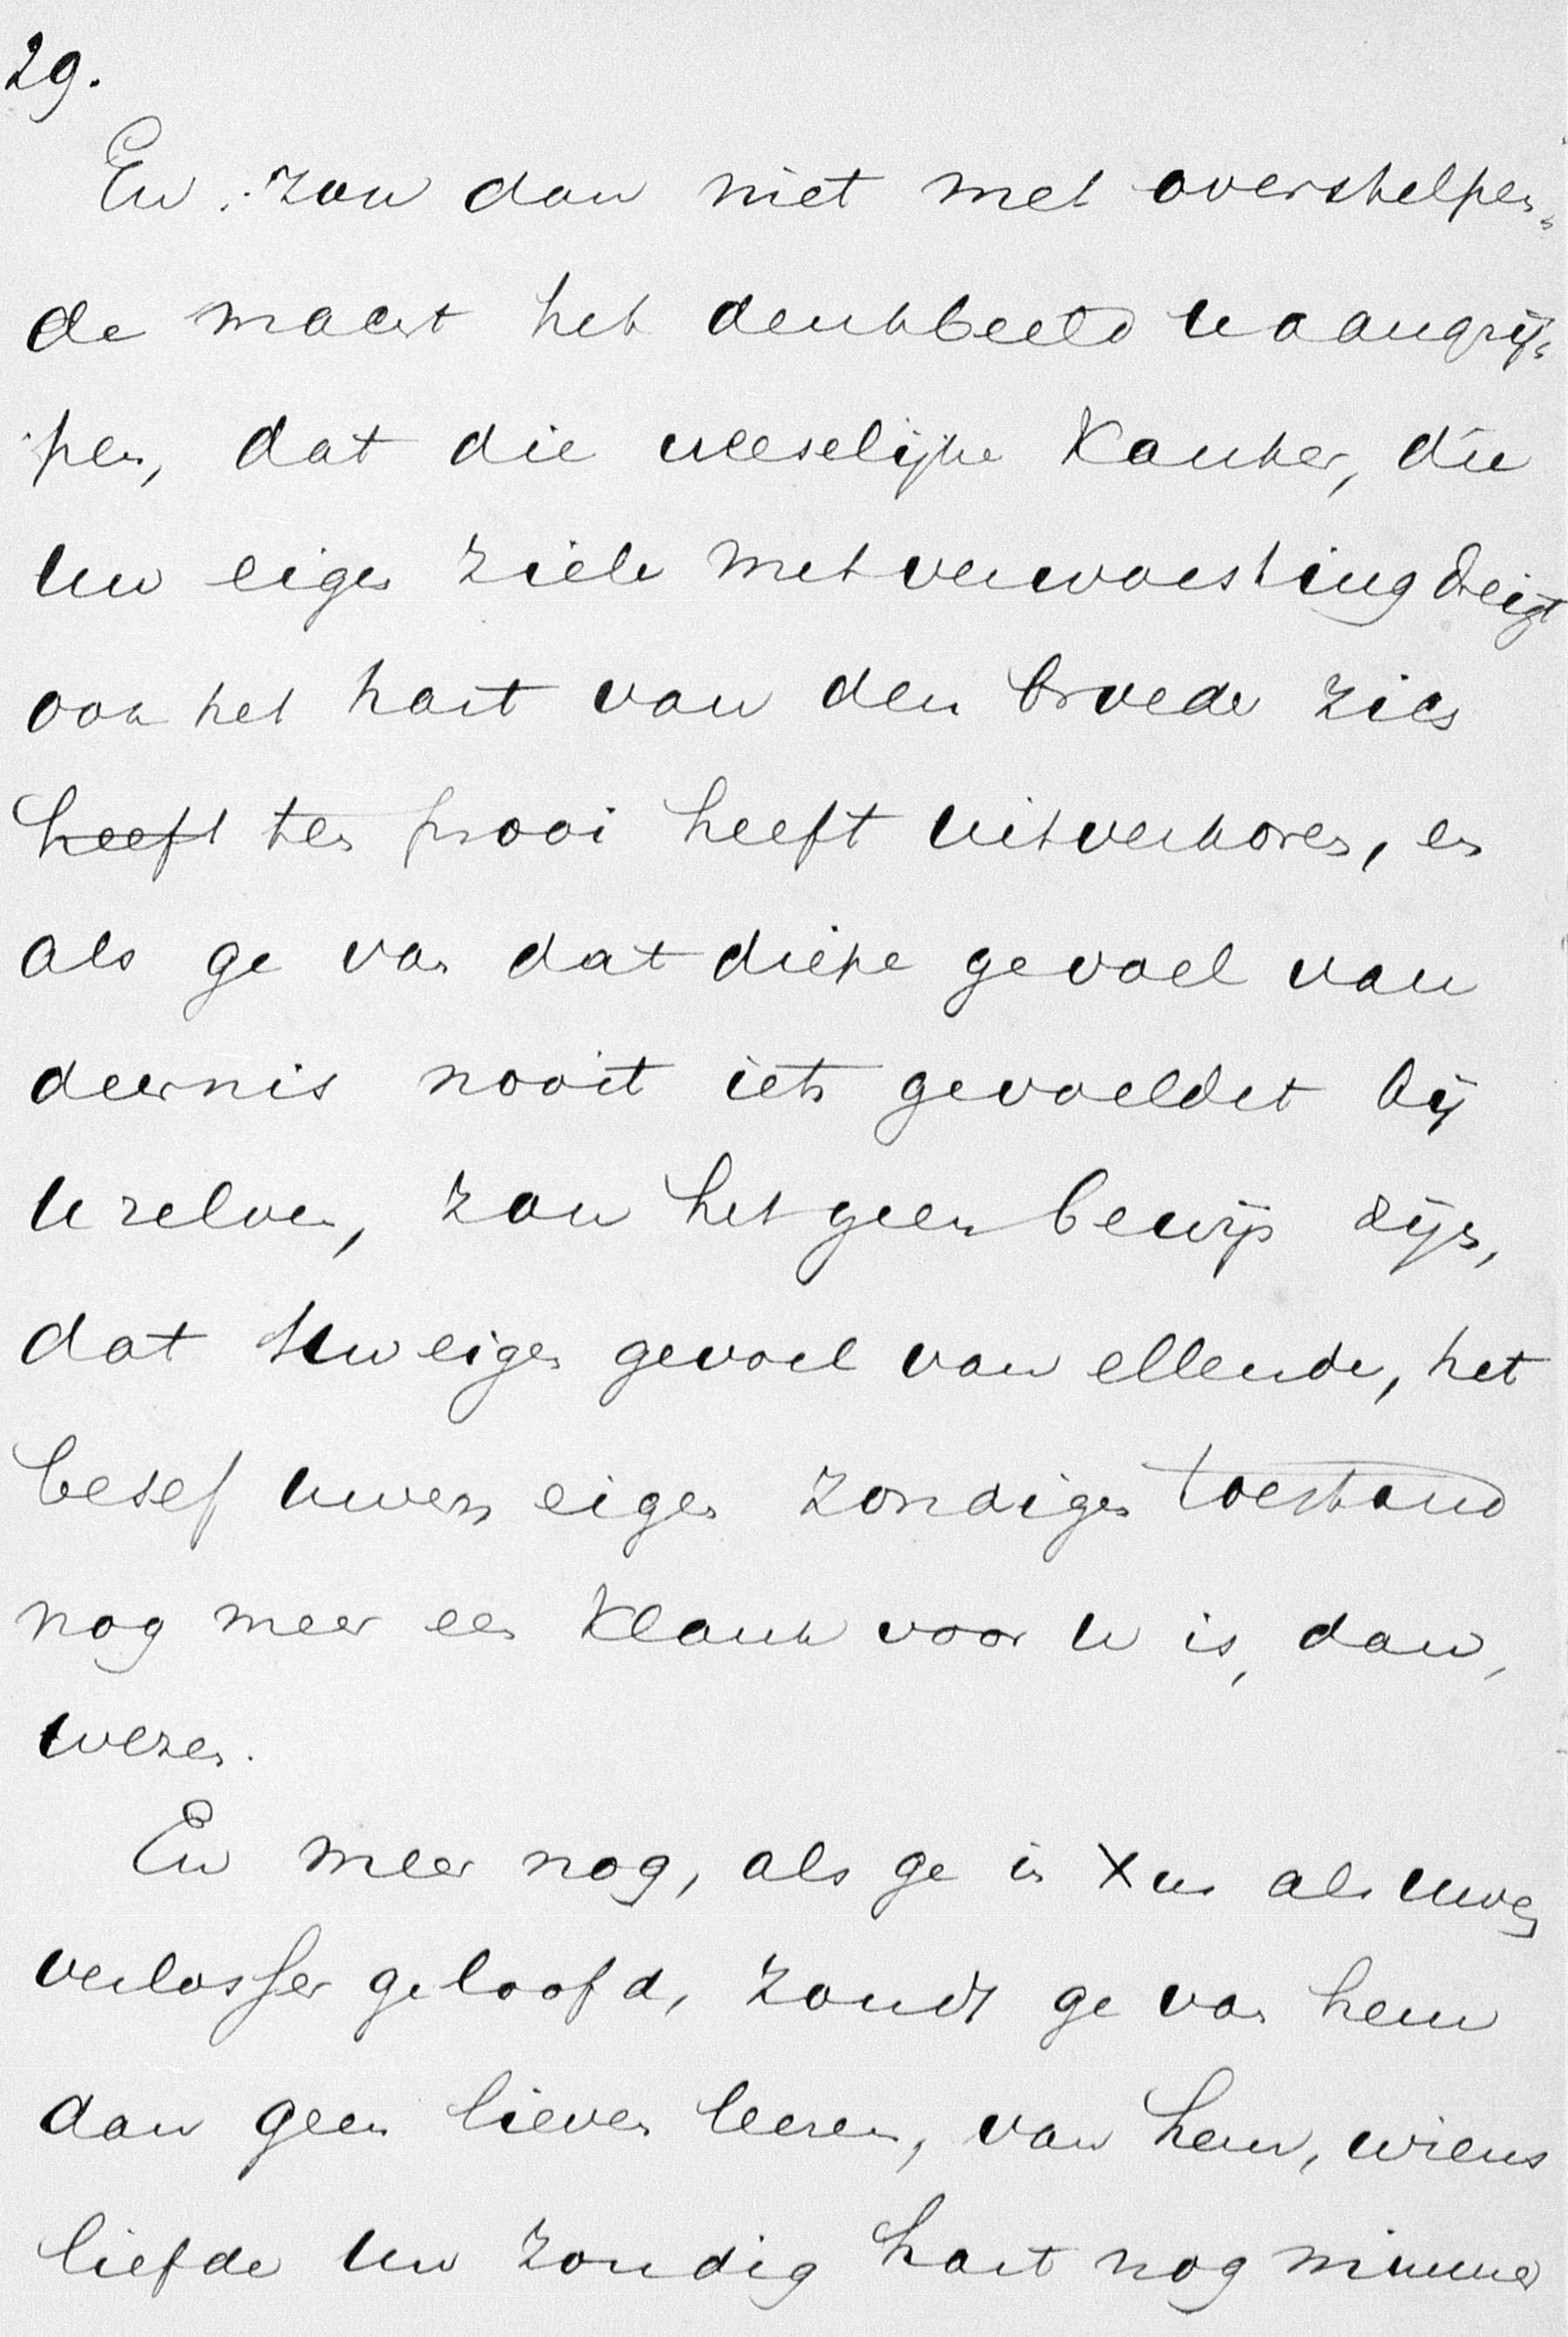 29.
En zou dan niet met overstelpen-
de macht het denkbeeld u aangrij-
pen, dat die vreeselijke Kanker, die
uw eigen ziele met verwoesting dreigt
ook het hart van den broeder zich
heeft ten prooi heeft uitverkoren, en
als ge van dat diepe gevoel van
deernis nooit iets gevoeldet bij
U zelven, zou het geen bewijs zijn,
dat Uw eigen gevoel van ellende, het
besef uwen eigen zondigen toestand
nog meer een Klank voor U is, dan,
wezen.
En meer nog, als ge in Xus als uwen
verlosser geloofd, zoudt ge van hem
dan geen liever leeren, van hem, wiens
liefde Uw zondig hart nog nimmer